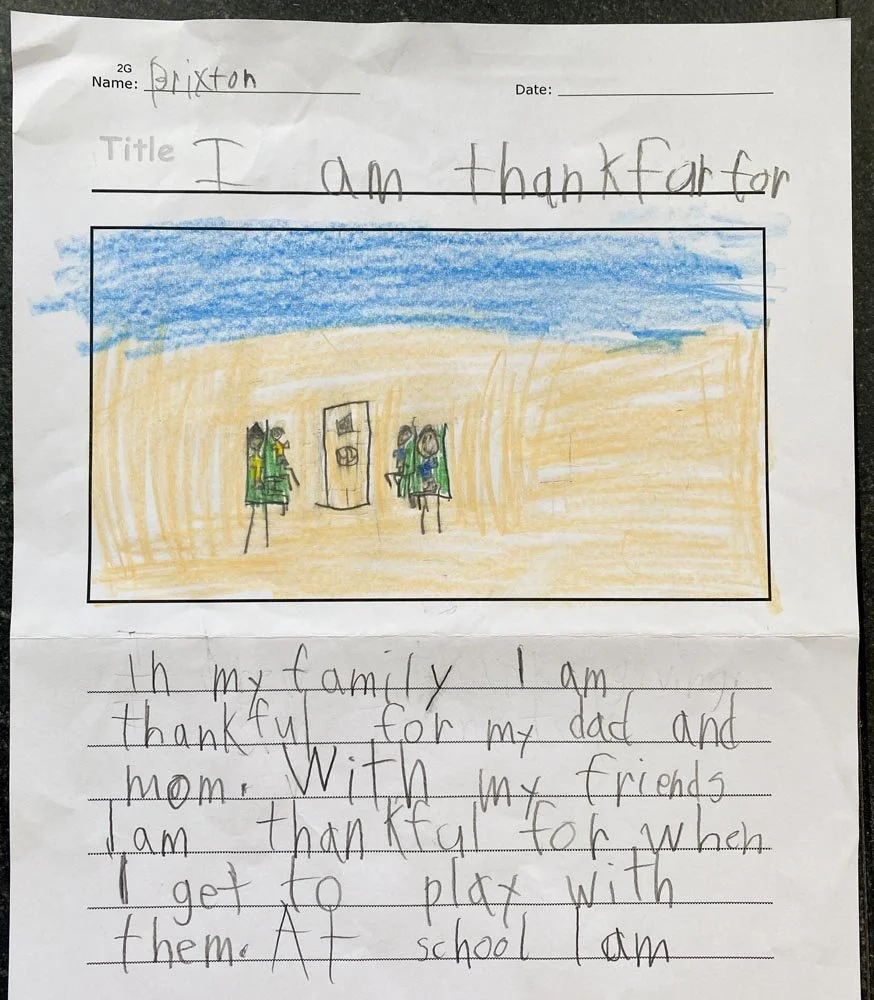 2G
Name: Brixton
Date:
Title I am thankfar for
In my family I am
thankful for my dad and
mom. With my friends
I am thankful for when
I get to play with
them. At school I am